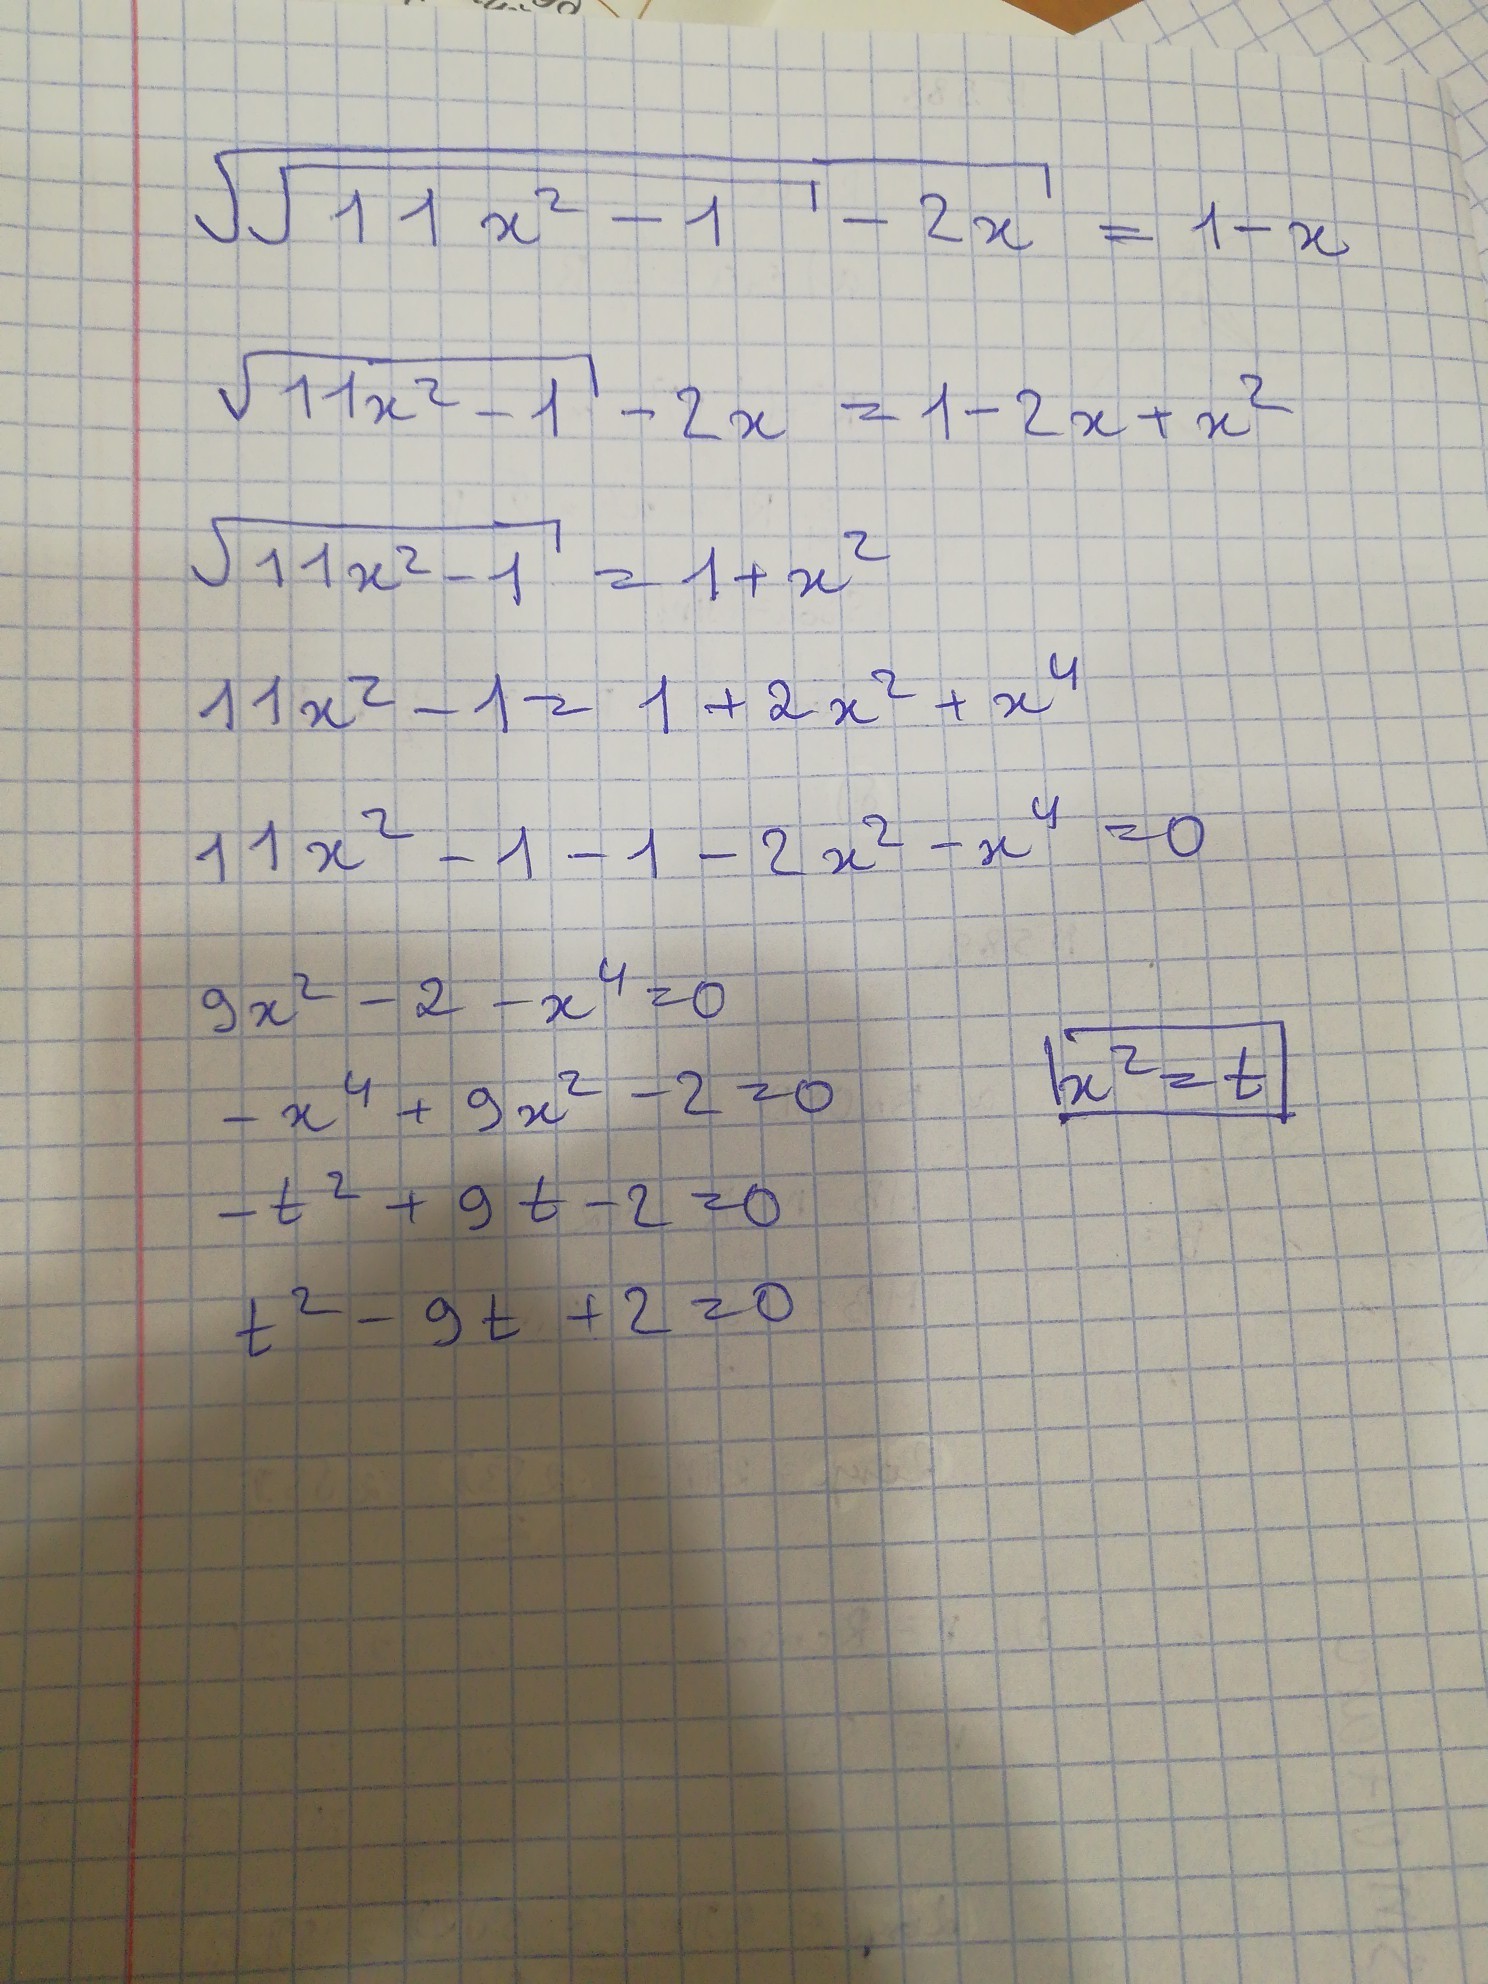 √(√(11x² - 1) - 2x) = 1 - x
√(11x² - 1) - 2x = 1 - 2x + x²
√(11x² - 1) = 1 + x²
11x² - 1 = 1 + 2x² + x⁴
11x² - 1 - 1 - 2x² - x⁴ = 0
9x² - 2 - x⁴ = 0
x² = t
-x⁴ + 9x² - 2 = 0
-t² + 9t - 2 = 0
t² - 9t + 2 = 0